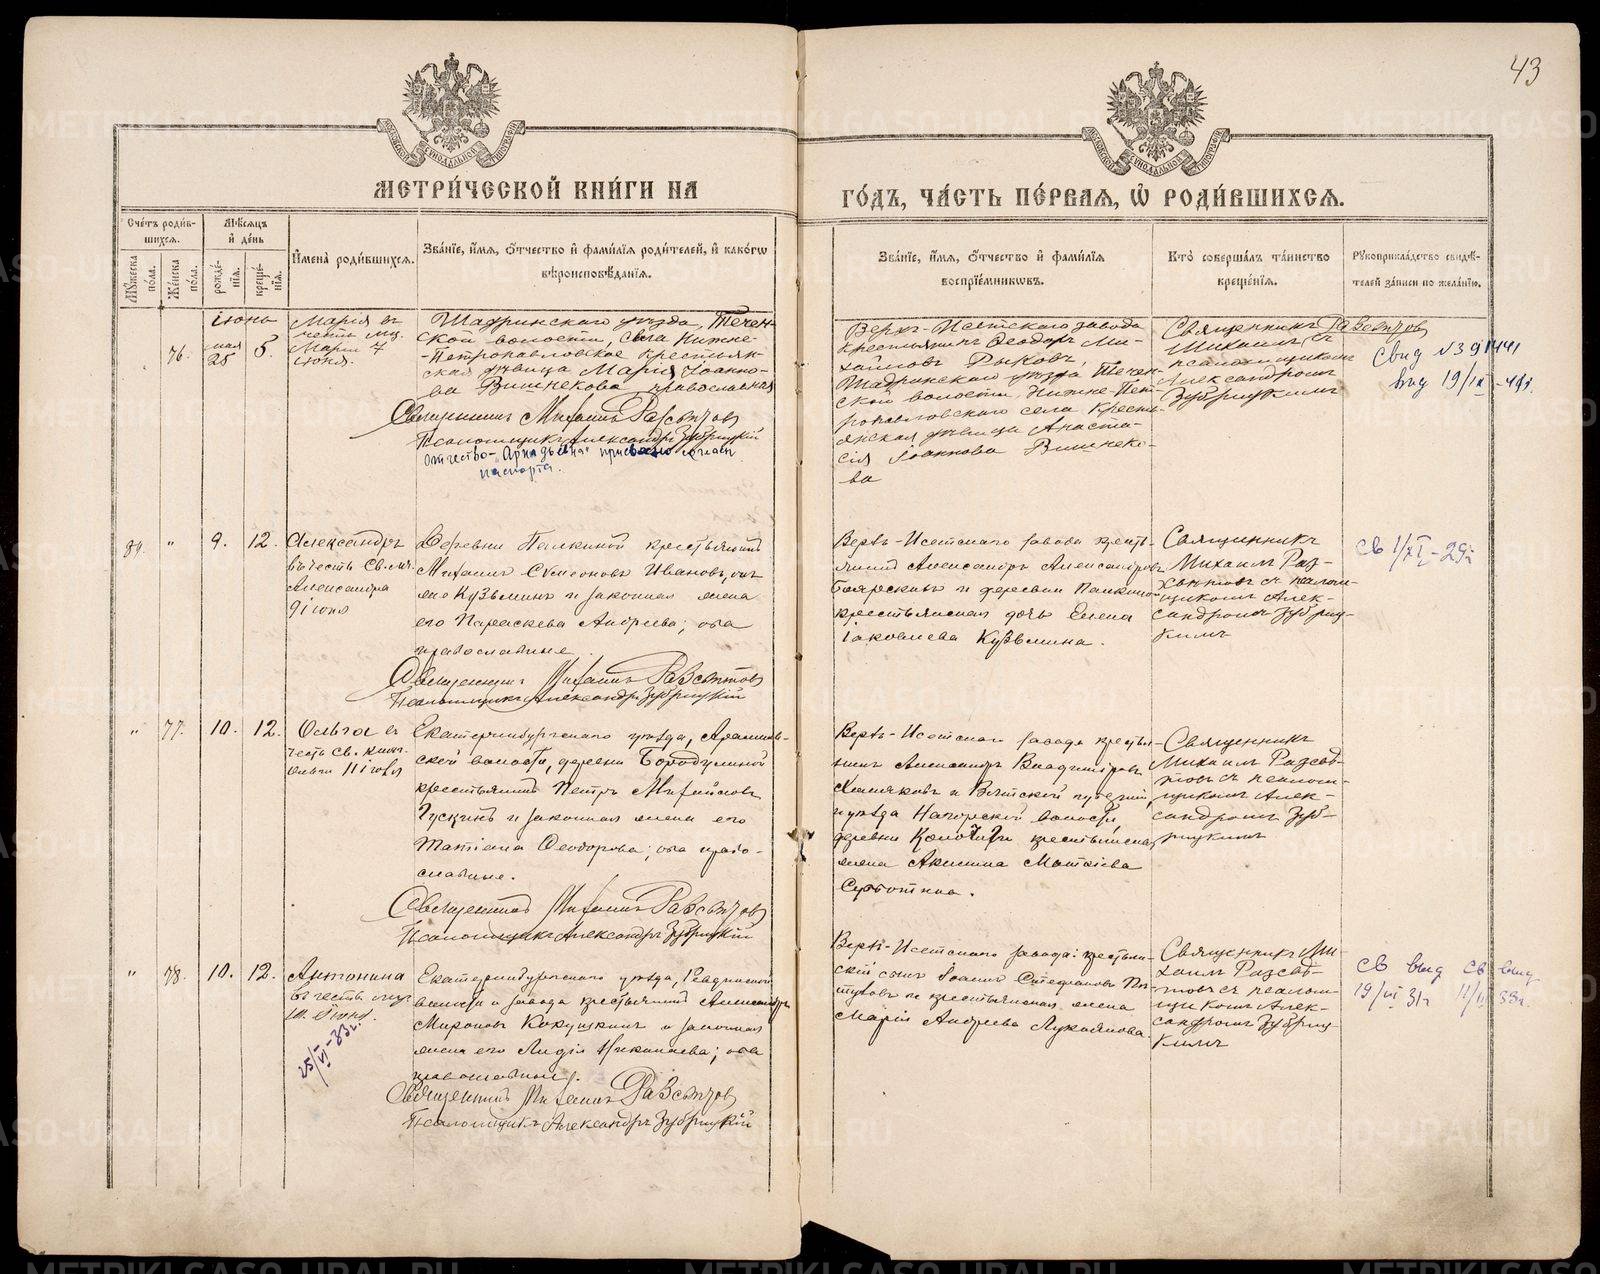 43
МОСКОВСКОЙ СѴНОДАЛЬНОЙ ТИПОГРАФІИ
МОСКОВСКОЙ СѴНОДАЛЬНОЙ ТИПОГРАФІИ
МЕТРИ́ЧЕСКОЙ КНИ́ГИ НА
ГО́ДЪ, ЧА́СТЬ ПЕ́РВАЯ, Ѡ҆ РОДИ́ВШИХСЯ.
Сче́тъ роди́в-
шихся.
Мѣ́сяцъ
и҆ де́нь
Му́жеска по́ла.
Же́нска по́ла.
рожде́-
нїя.
креще́-
нїя.
И҆мена̀ роди́вшихся.
Зва́нїе, и҆́мя, ѻ҆́тчество и҆ фами́лїя роди́телей, и҆ како́гѡ
вѣроисповѣ́данїя.
Зва́нїе, и҆́мя, ѻ҆́тчество и҆ фами́лїя
воспрїе́мникѡвъ.
Кто̀ соверша́лъ та́инство
креще́нїя.
Рꙋкоприкла́дство свидѣ́-
телей за́писи по жела́нїю.
76.
іюнь
мая
25
5.
Марія въ
честь му.
Маріи 7
іюня.
Шадринскаго уѣзда, Течен-
ской волости, села Нижне-
-Петропавловское крестьян-
ская дѣвица Марія Іоанно-
ва Вишнекова православная
Священникъ Михаилъ Развѣтовъ
Псаломщикъ Александръ Зубрицкій
Отчество-„Аркадьевна" присвоено согласн
паспорта.
Верхъ-Исетскаго завода
крестьянинъ Ѳеодоръ Ми-
хайловъ Рыковъ,
Шадринскаго уѣзда Течен-
ской волости, Нижне-Пет-
ропавловскаго села кресть-
янская дѣвица Анаста-
сія Іоаннова Вишнеко-
ва
Священникъ
Михаилъ Развѣтовъ съ
псаломщикомъ
Александромъ
Зубрицкимъ
Свид N 391441
выд 19/IX-41г.
84.
"
9.
12.
Александръ
въ честь св. му.
Александра
9 іюня
Деревни Палкиной крестьянинъ
Михаилъ Симеоновъ Ивановъ, онъ
же Кузьминъ и законная жена
его Параскева Андреева; оба
православные.
Священникъ Михаилъ Развѣтовъ
Псаломщикъ Александръ Зубрицкій
Верхъ-Исетскаго завода кресть-
янинъ Александръ Александровъ
Боярскихъ и деревни Палкиной
крестьянская дочь Елена
Іаковлева Кузьмина.
Священникъ
Михаилъ Раз-
вѣтовъ съ псалом-
щикомъ Алек-
сандромъ Зубриц-
кимъ
св 1/XI-29г
"
77.
10.
12.
Ольга въ
честь св. княг.
Ольги 11 іюля
Екатеринбургскаго уѣзда, Арамиль-
ской волости, деревни Бородулиной
крестьянинъ Петръ Михайловъ
Гускинъ и законная жена его
Татіана Ѳеодорова; оба право-
славные.
Священникъ Михаилъ Развѣтовъ
Псаломщикъ Александръ Зубрицкій
Верхъ-Исетскаго завода крестья-
нинъ Александръ Владиміровъ
Хомяковъ и Вятской губерніи,
уѣзда Нагорской волости
деревни крестьянская
жена Акилина Матѳіева
Суботина.
Священникъ
Михаилъ Развѣ-
товъ съ псалом-
щикомъ Алек-
сандромъ Зуб-
рицкимъ
"
78.
10.
12.
Антонина
въ честь муч.
10 іюня.
25/VI-33г.
Екатеринбургскаго уѣзда, Ревдинской
волости и завода крестьянинъ Александръ
Мироновъ Кокушкинъ и законная
жена его Лидія Николаева; оба
православные.
Священникъ Михаилъ Развѣтовъ
Псаломщикъ Александръ Зубрицкій
Верхъ-Исетскаго завода: крестьян-
скій сынъ Іоаннъ Стефановъ Па-
стуховъ и крестьянская жена
Марія Андреева Лукоянова
Священникъ Ми-
хаилъ Развѣ-
товъ съ псалом-
щикомъ Алек-
сандромъ Зубриц-
кимъ
св выд св выд
19/VI 31г 11/II 33г.
METRIKI.GASO-URAL.RU